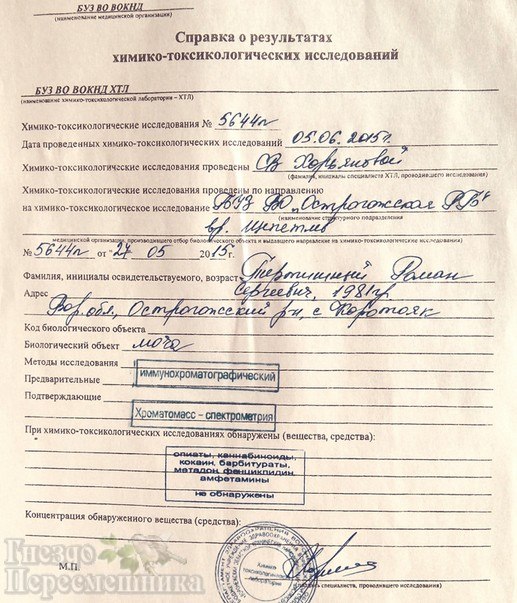 БУЗ ВО ВОКНД
(наименование медицинской организации)
Справка о результатах
химико-токсикологических исследований
БУЗ ВО ВОКНД ХТЛ
(наименование химико-токсикологической лаборатории – ХТЛ)
Химико-токсикологические исследования № 5644п
Дата проведенных химико-токсикологических исследований 05.06.2015г.
Химико-токсикологические исследования проведены СВ
(фамилия, инициалы специалиста ХТЛ, проводившего исследования)
Химико-токсикологические исследования проведены по направлению
на химико-токсикологическое исследование БУЗ ВО „Острогожская РБ"
(наименование структурного подразделения
вр.
медицинской организации, производившего отбор биологического объекта и выдавшего направление на химико-токсикологические исследования)
№ 5644п от "27 05 2015г.
Фамилия, инициалы освидетельствуемого, возраст Роман
Адрес Сергеевич, 1981гр
Вор.обл, Острогожский р-н, с Коротояк
Код биологического объекта
Биологический объект моча
Методы исследования
иммунохроматографический
Предварительные
Подтверждающие
Хроматомасс – спектрометрия
При химико-токсикологических исследованиях обнаружены (вещества, средства):
опиаты, каннабиноиды,
кокаин, барбитураты,
метадон, фенциклидин,
амфетамины
не обнаружены
Концентрация обнаруженного вещества (средства):
Химико
токсикологическая
лаборатория
М.П.
специалиста, проводившего исследования)
Гнездо
Пересмешника